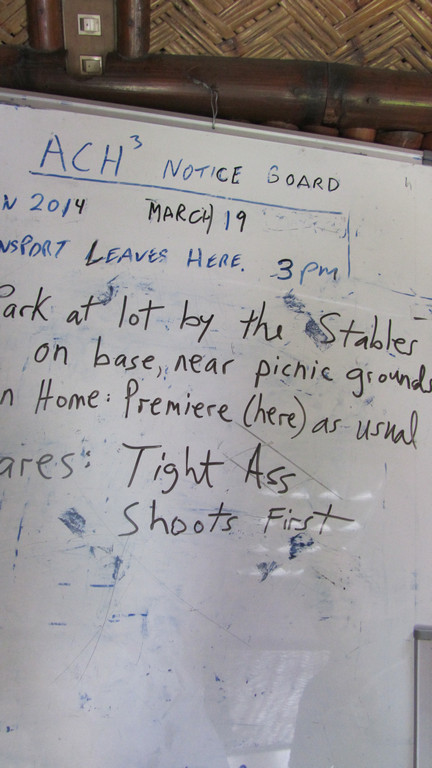 ACH³ NOTICE BOARD
N 2014 MARCH 19
NSPORT LEAVES HERE. 3pm
Park at lot by the Stables
on base, near picnic grounds
n Home: Premiere (here) as usual
ares: Tight Ass
Shoots First